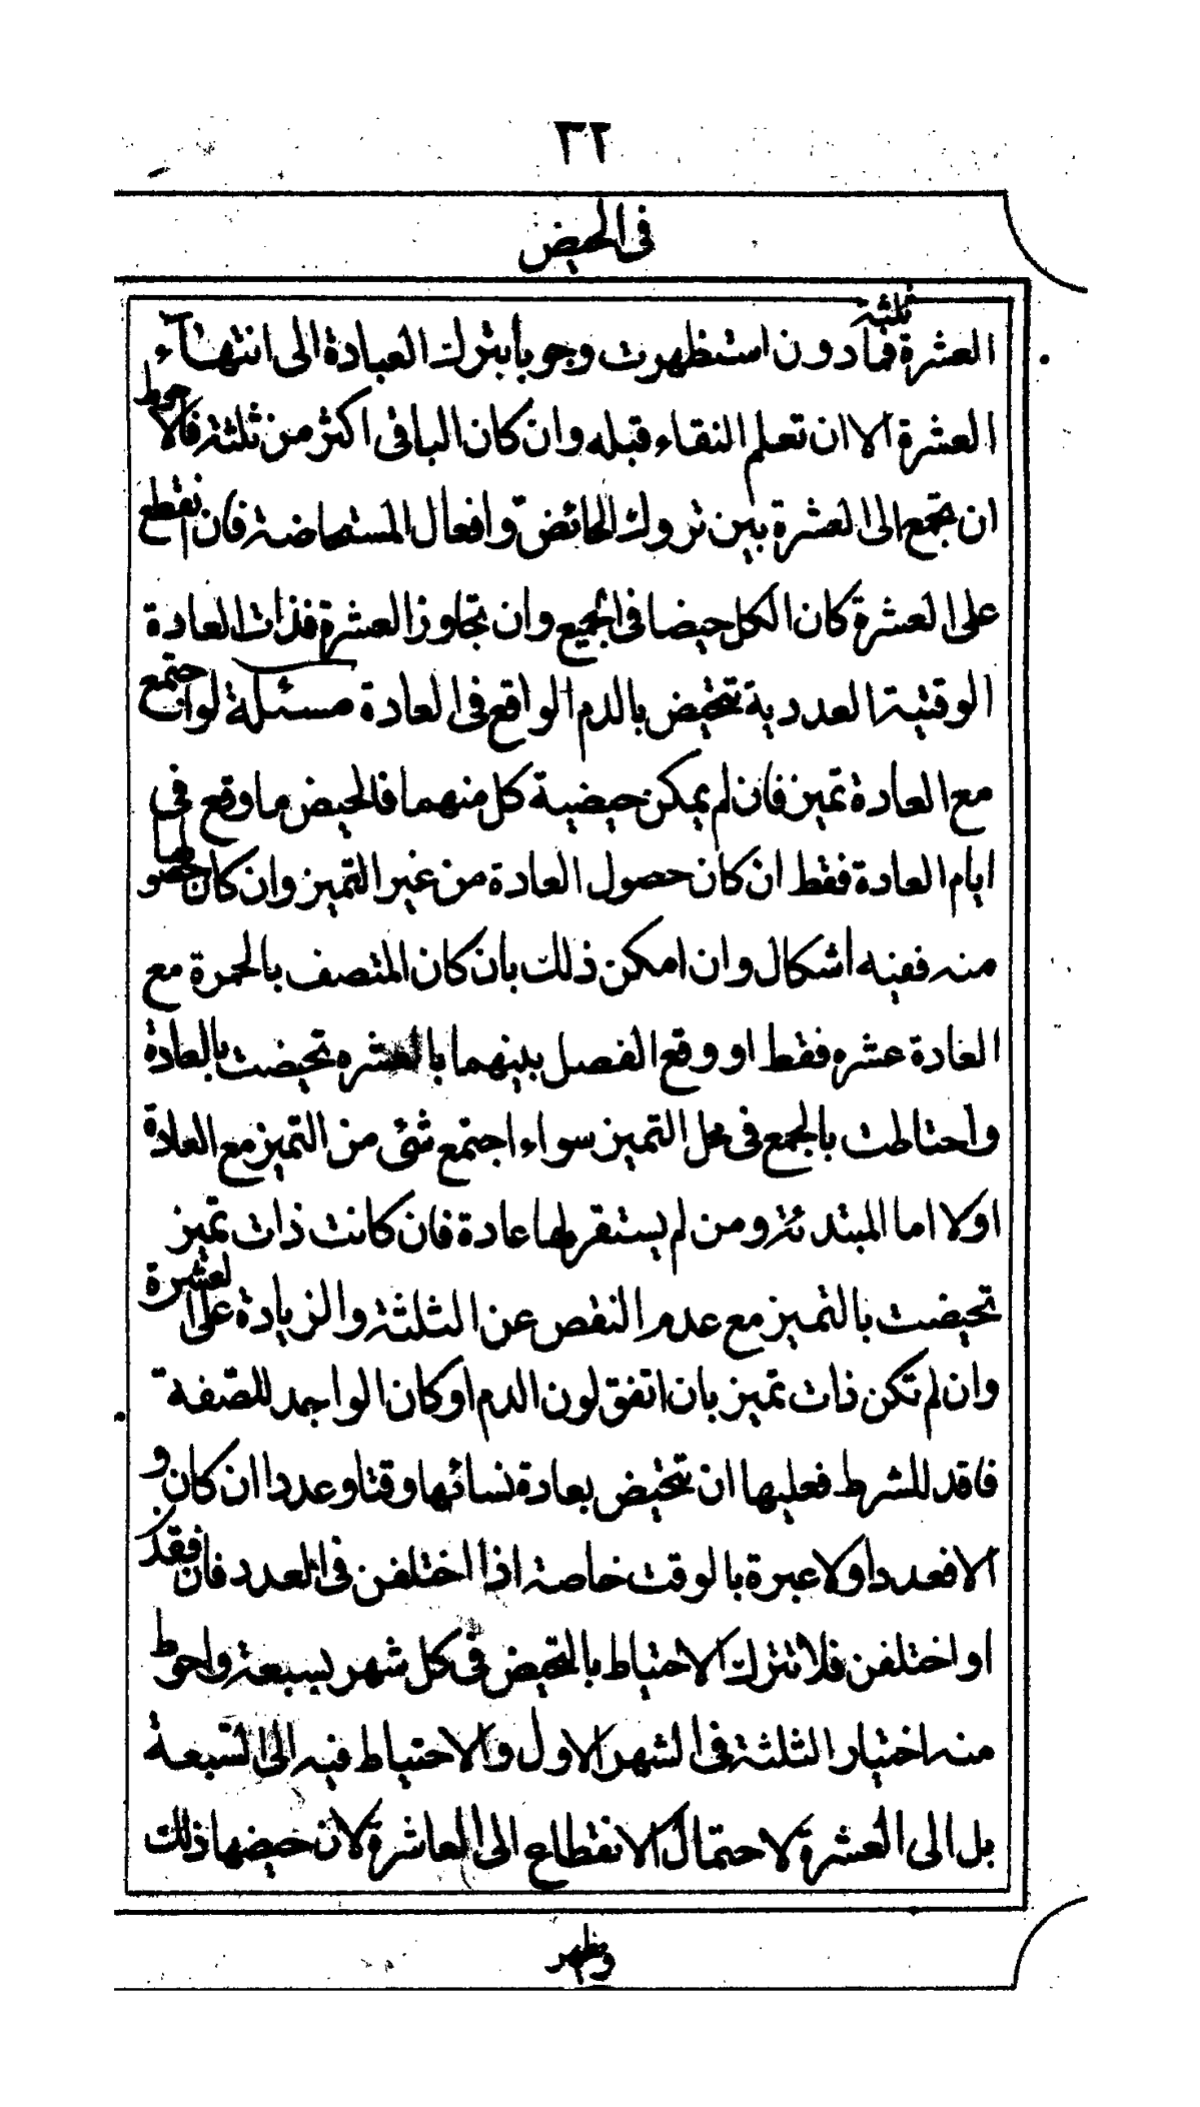 ٣٢
فى الحيض
العشرة ثلثة فما دون استظهرت وجوباً بترك العبادة الى انتهاء
العشرة الا ان تعلم النقاء قبله وان كان الباقى اكثر من ثلثة فالاحوط
ان تجمع الى العشرة بين تروك الحائض وافعال المستحاضة فان انقطع
على العشرة كان الكل حيضا فى الجميع وان تجاوز العشرة فذات العادة
الوقتية العددية تتحيض بالدم الواقع فى العادة مسئلة لو اجتمع
مع العادة تميز فان لم يمكن حيضية كل منهما فالحيض ما وقع فى
ايام العادة فقط ان كان حصول العادة من غير التميز وان كان حصولها
منه ففيه اشكال وان امكن ذلك بان كان المتصف بالحمرة مع
العادة عشره فقط او وقع الفصل بينهما بالعشره تحيضت بالعادة
واحتاطت بالجمع فى محل التميز سواء اجتمع شئى من التميز مع العادة
اولا اما المبتدئة ومن لم يستقر لها عادة فان كانت ذات تميز
تحيضت بالتميز مع عدم النقص عن الثلثة والزيادة على العشرة
وان لم تكن ذات تميز بان اتفق لون الدم او كان الواجد للصّفة
فاقد للشرط فعليها ان تتحيض بعادة نسائها وقتا وعددا ان كان و
الا فعددا ولا عبرة بالوقت خاصة اذا اختلفن فى العدد فان فقد
او اختلفن فلا تترك الاحتياط بالتحيض فى كل شهر بسبعة واحوط
منه اختيار الثلثة فى الشهر الاول والاحتياط فيه الى السّبعة
بل الى العشرة لاحتمال الانقطاع الى العاشرة لان حيضها ذلك
وظهر